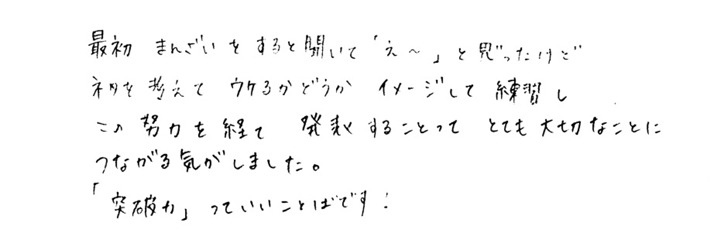 最初 まんざいをすると聞いて「え〜」と思ったけど
ネタを考えて ウケるかどうか イメージして 練習し
この 努力を経て 発表することって とても大切なことに
つながる気がしました。
「突破力」っていいことばです!